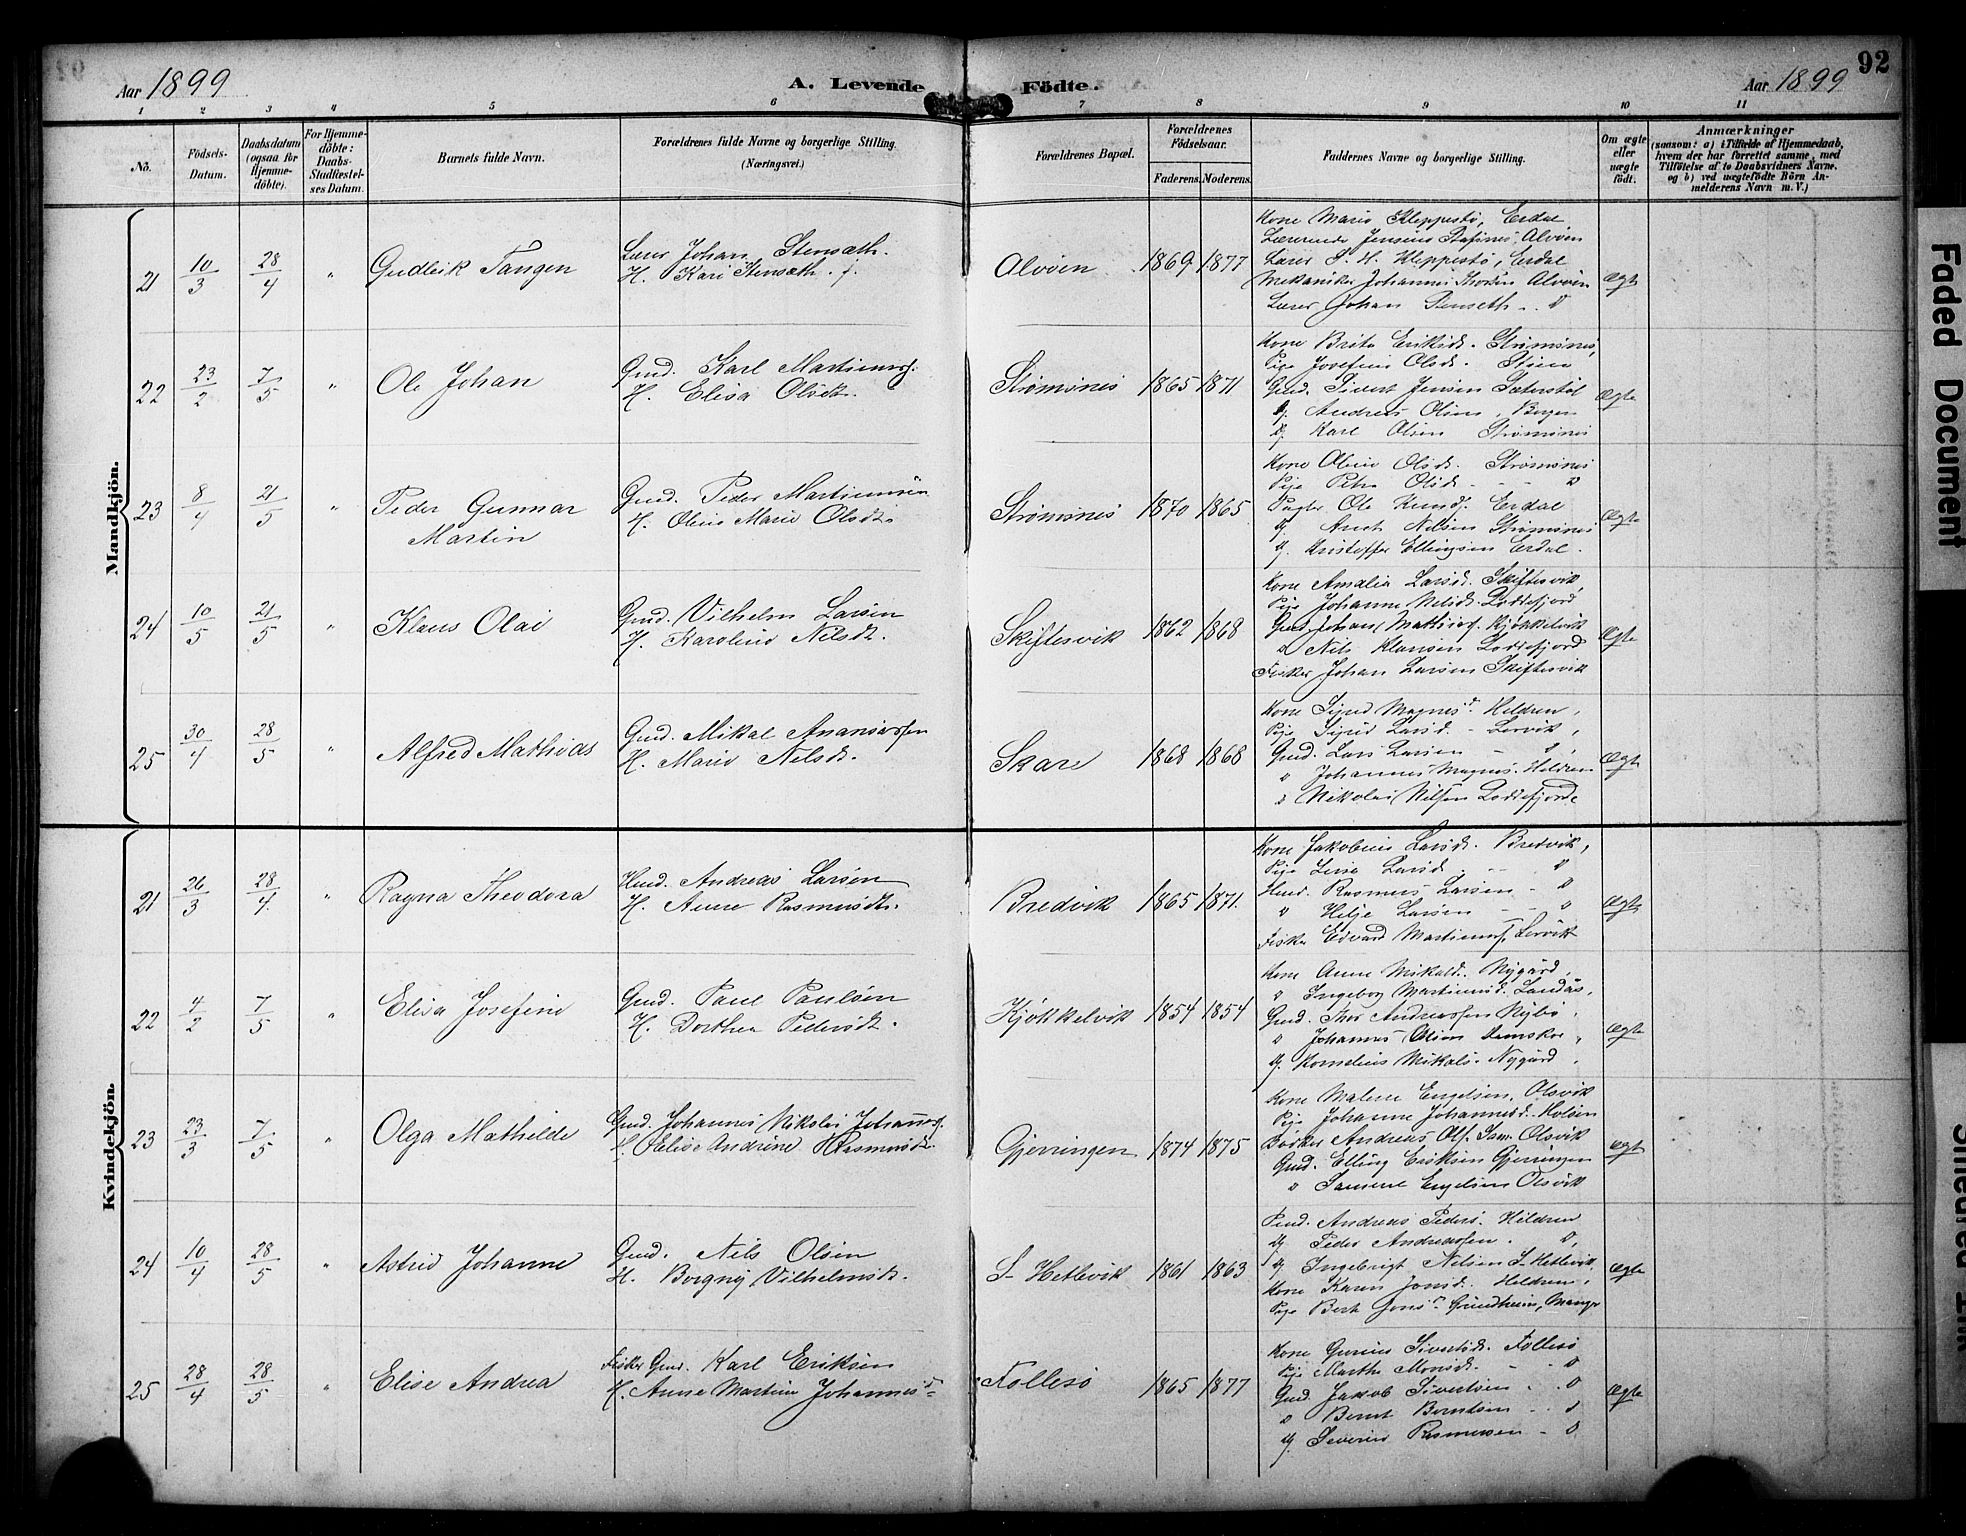 92
Aar 1899
A. Levende Födte.
Aar 1899
1 2 3 4 5 6 7 8 9 10 11
No.
Födsels-Datum.
Daabsdatum (ogsaa for Hjemme-döbte).
For Hjemme-döbte: Daabs-Stadfæstel-ses Datum.
Barnets fulde Navn.
Forældrenes fulde Navne og borgerlige Stilling. (Næringsvei.)
Forældrenes Bopæl.
Forældrenes Födselsaar.
Faderens. Moderens.
Faddernes Navne og borgerlige Stilling.
Om ægte eller uægte födt.
Anmærkninger
(saasom: a) i Tilfælde af Hjemmedaab, hvem der har forrettet samme, med Tilföielse af to Daabsvidners Navne, og b) ved uægtefödte Börn Anmelderens Navn m. V.)
Mandkjön.
21 10/3 28/4 " Gudleik Tangen
Lærer Johan Stensæth.
H. Kari Stensæth.
Alvöen 1869 1877
Kone Marie Kleppestö, Erdal
Lærerinde Alvöen
Lærer S. H. Kleppestö, Erdal
Mekaniker Johannes Alvöen
Lærer Johan Stenseth
Ægte
22 23/2 7/5 " Ole Johan
Gmd. Karl Martinus.
H. Elisa Olsdt.
Strömsnes 1865 1871
Kone Brita Eriksd. Strömsnes,
Pige Josefine Olsd.
Gmd. Sivert Jensen
Andreas Olsen, Bergen
Karl Olsen Strömsnes
Ægte
23 8/4 21/5 " Peder Gunnar
Martin
Gmd. Peder Martinussen
H. Oline Marie Olsdt.
Strömsnes 1870 1865
Kone Oline Olsd. Strömsnes
Pige Petra Olsd.
Ole Knuds. Erdal
Nilsen Strömsnes
Kristoffer Ellingsen Erdal.
Ægte
24 10/5 21/5 " Klaus Olai
Gmd. Vilhelm Larsen
H. Karoline Nilsdt.
Skiftesvik 1862 1868
Kone Amalia Larsd. Skiftesvik,
Pige Johanne Nilsd. Loddefjord
Gmd. Johan Kjökkelvik
" Nils Klausen Loddefjord
Fisker Johan Larsen Skiftesvik
Ægte
25 30/4 28/5 " Alfred Mathias
Gmd. Mikal Ananiassen
H. Marie Nilsdt.
Skare 1868 1868
Kone Sigrid Magnesd. Hildren,
Pige Sigrid Larsd. Lervik,
Gmd. Lars Larsen
" Johannes Magnes. Hildren
" Nikolai Nilsen Loddefjorde
Ægte
Kvindekjön.
21 26/3 28/4 " Ragna Theodora
Hmd. Andreas Larsen
H. Anne Rasmusdt.
Bredvik 1865 1871
Kone Jakobine Larsd. Bredvik,
Pige Line Larsd.
Hmd. Rasmus Larsen
" Helje Larsen
Fisker Edvard Martinus. Lervik
Ægte
22 4/2 7/5 " Elisa Josefine
Gmd. Paul Paulsen
H. Dorthea Pedersdt.
Kjökkelvik 1854 1854
Kone Anne Mikald. Nygård,
" Ingeborg Martinusd. Landås,
Gmd. Thor Andreassen
" Johannes Olsen
Kornelius Mikals. Nygård,
Ægte
23 23/3 7/5 " Olga Mathilde
Gmd. Johannes Nikolai Johannes.
H. Elise Andrine Rasmusdt.
Gjerringen 1874 1875
Kone Malene Engelsen, Olsvik
Pige Johanne Johannesd. Holsen
Bödker Andreas Ols. Olsvik
Gmd. Elling Eriksen Gjerringen
" Engelsen Olsvik
Ægte
24 10/4 28/5 " Astrid Johanne
Gmd. Nils Olsen
H. Borgny Vilhelmsdt.
S. Hetlevik 1861 1863
Andreas Peders. Hildren
Peder Andreassen.
Ingebrigt Nilsen S. Hetlevik
Kone Karen Jonsd. Hildren,
Pige Berte Jonsd. Grundheim, Manger
Ægte
25 28/4 28/5 " Elise Andrea
Fisker Gmd. Karl Eriksen
H. Anne Martine Johannesd.
Follesö 1865 1877
Kone Gurine Sivertsd. Follesö
Pige Marthe Monsd.
Gmd. Jakob Sivertsen
" Bernt Berntsen
Severin Rasmussen
Ægte
Faded Document
Smeared Ink